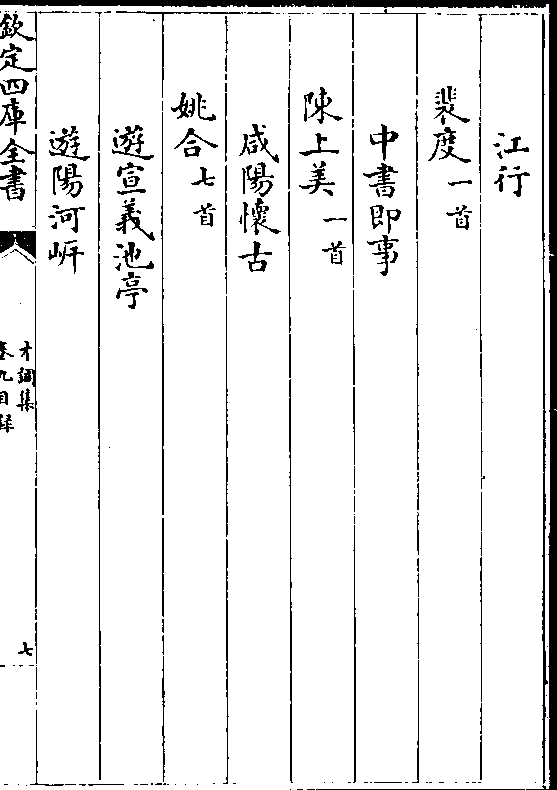 江行
裴度一首
中書即事
陳上美一首
咸陽懷古
姚合七首
遊宣義池亭
遊陽河岍
欽定四庫全書
才調集
卷九目録
七